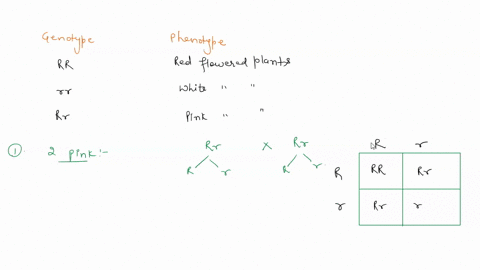 Genotype Phenotype
RR Red flowered plants
rr White " "
Rr Pink " "
① 2 pink:- Rr × Rr
R r R r
R r
R RR Rr
r Rr r